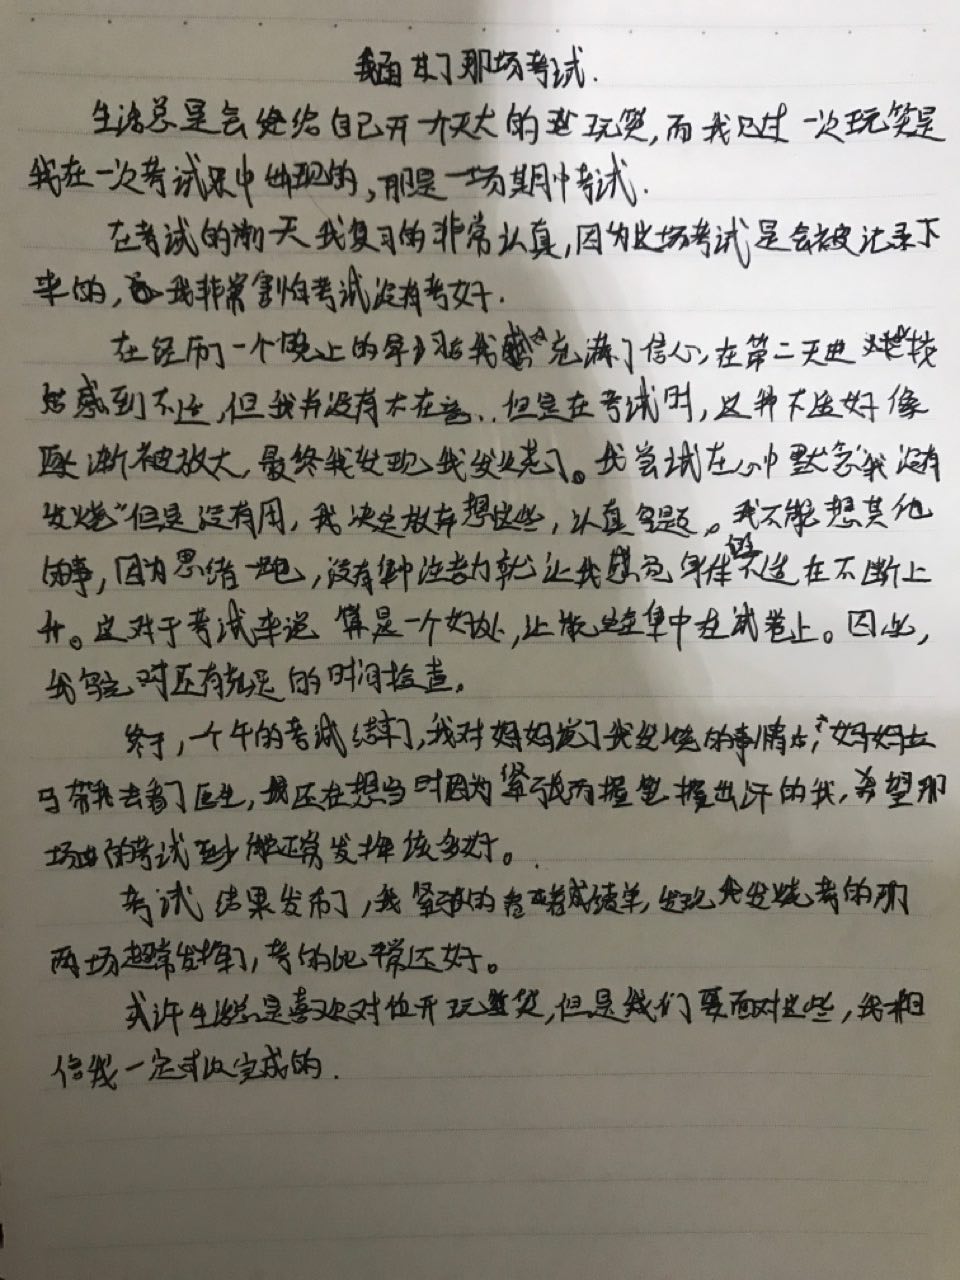 我面对了那场考试.
生活总是会给自己开个天大的玩笑,而我已过一次玩笑是
我在一次考试中出现的,那是一场期中考试.
在考试的前一天我复习的非常认真,因为这场考试是会被记录下
来的,我非常害怕考试没有考好.
在经历一个晚上的复习后我充满了信心,在第二天
感到不适,但我并没有太在意.但是在考试时,这种不适好像
逐渐被放大,最终我发现我发烧了。我尝试在心中默念"我没有
发烧"但是没有用,我决定放弃想这些,认真写题。我不能想其他
的事,因为思绪一跑,没有集中注意力就让我感觉身体的不适在不断上
升。这对于考试来说算是一个好处,让我集中在试卷上。因此,
我写完时还有充足的时间检查。
终于,一个午的考试结束了,我对妈妈说了我发烧的事情后,妈妈立
马带我去看了医生,我还在想当时因为紧张而握笔握出汗的我,希望那
场的考试至少能正常发挥该多好。
考试结果发布了,我紧张的看着成绩单,发现我发烧考的那
两场超常发挥了,考的比平常还好。
或许生活总是喜欢对你开玩笑,但是我们要面对这些,我相
信我一定可以完成的.